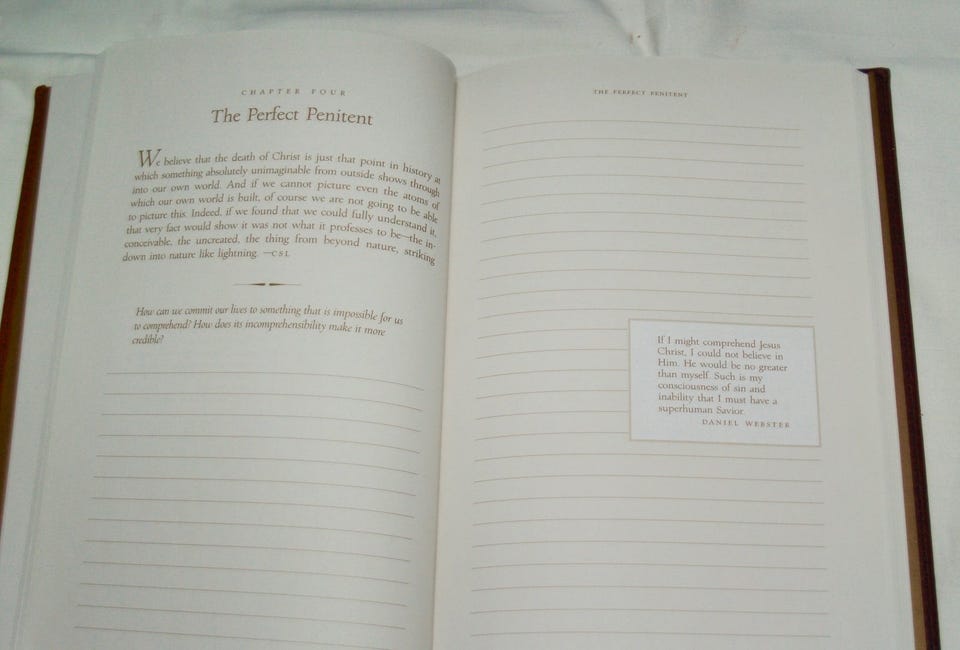 CHAPTER FOUR
The Perfect Penitent
We believe that the death of Christ is just that point in history at
which something absolutely unimaginable from outside shows through
into our own world. And if we cannot picture even the atoms of
which our own world is built, of course we are not going to be able
to picture this. Indeed, if we found that we could fully understand it,
that very fact would show it was not what it professes to be—the in-
conceivable, the uncreated, the thing from beyond nature, striking
down into nature like lightning. —CSL
How can we commit our lives to something that is impossible for us
to comprehend? How does its incomprehensibility make it more
credible?
THE PERFECT PENITENT
If I might comprehend Jesus
Christ, I could not believe in
Him. He would be no greater
than myself. Such is my
consciousness of sin and
inability that I must have a
superhuman Savior.
DANIEL WEBSTER